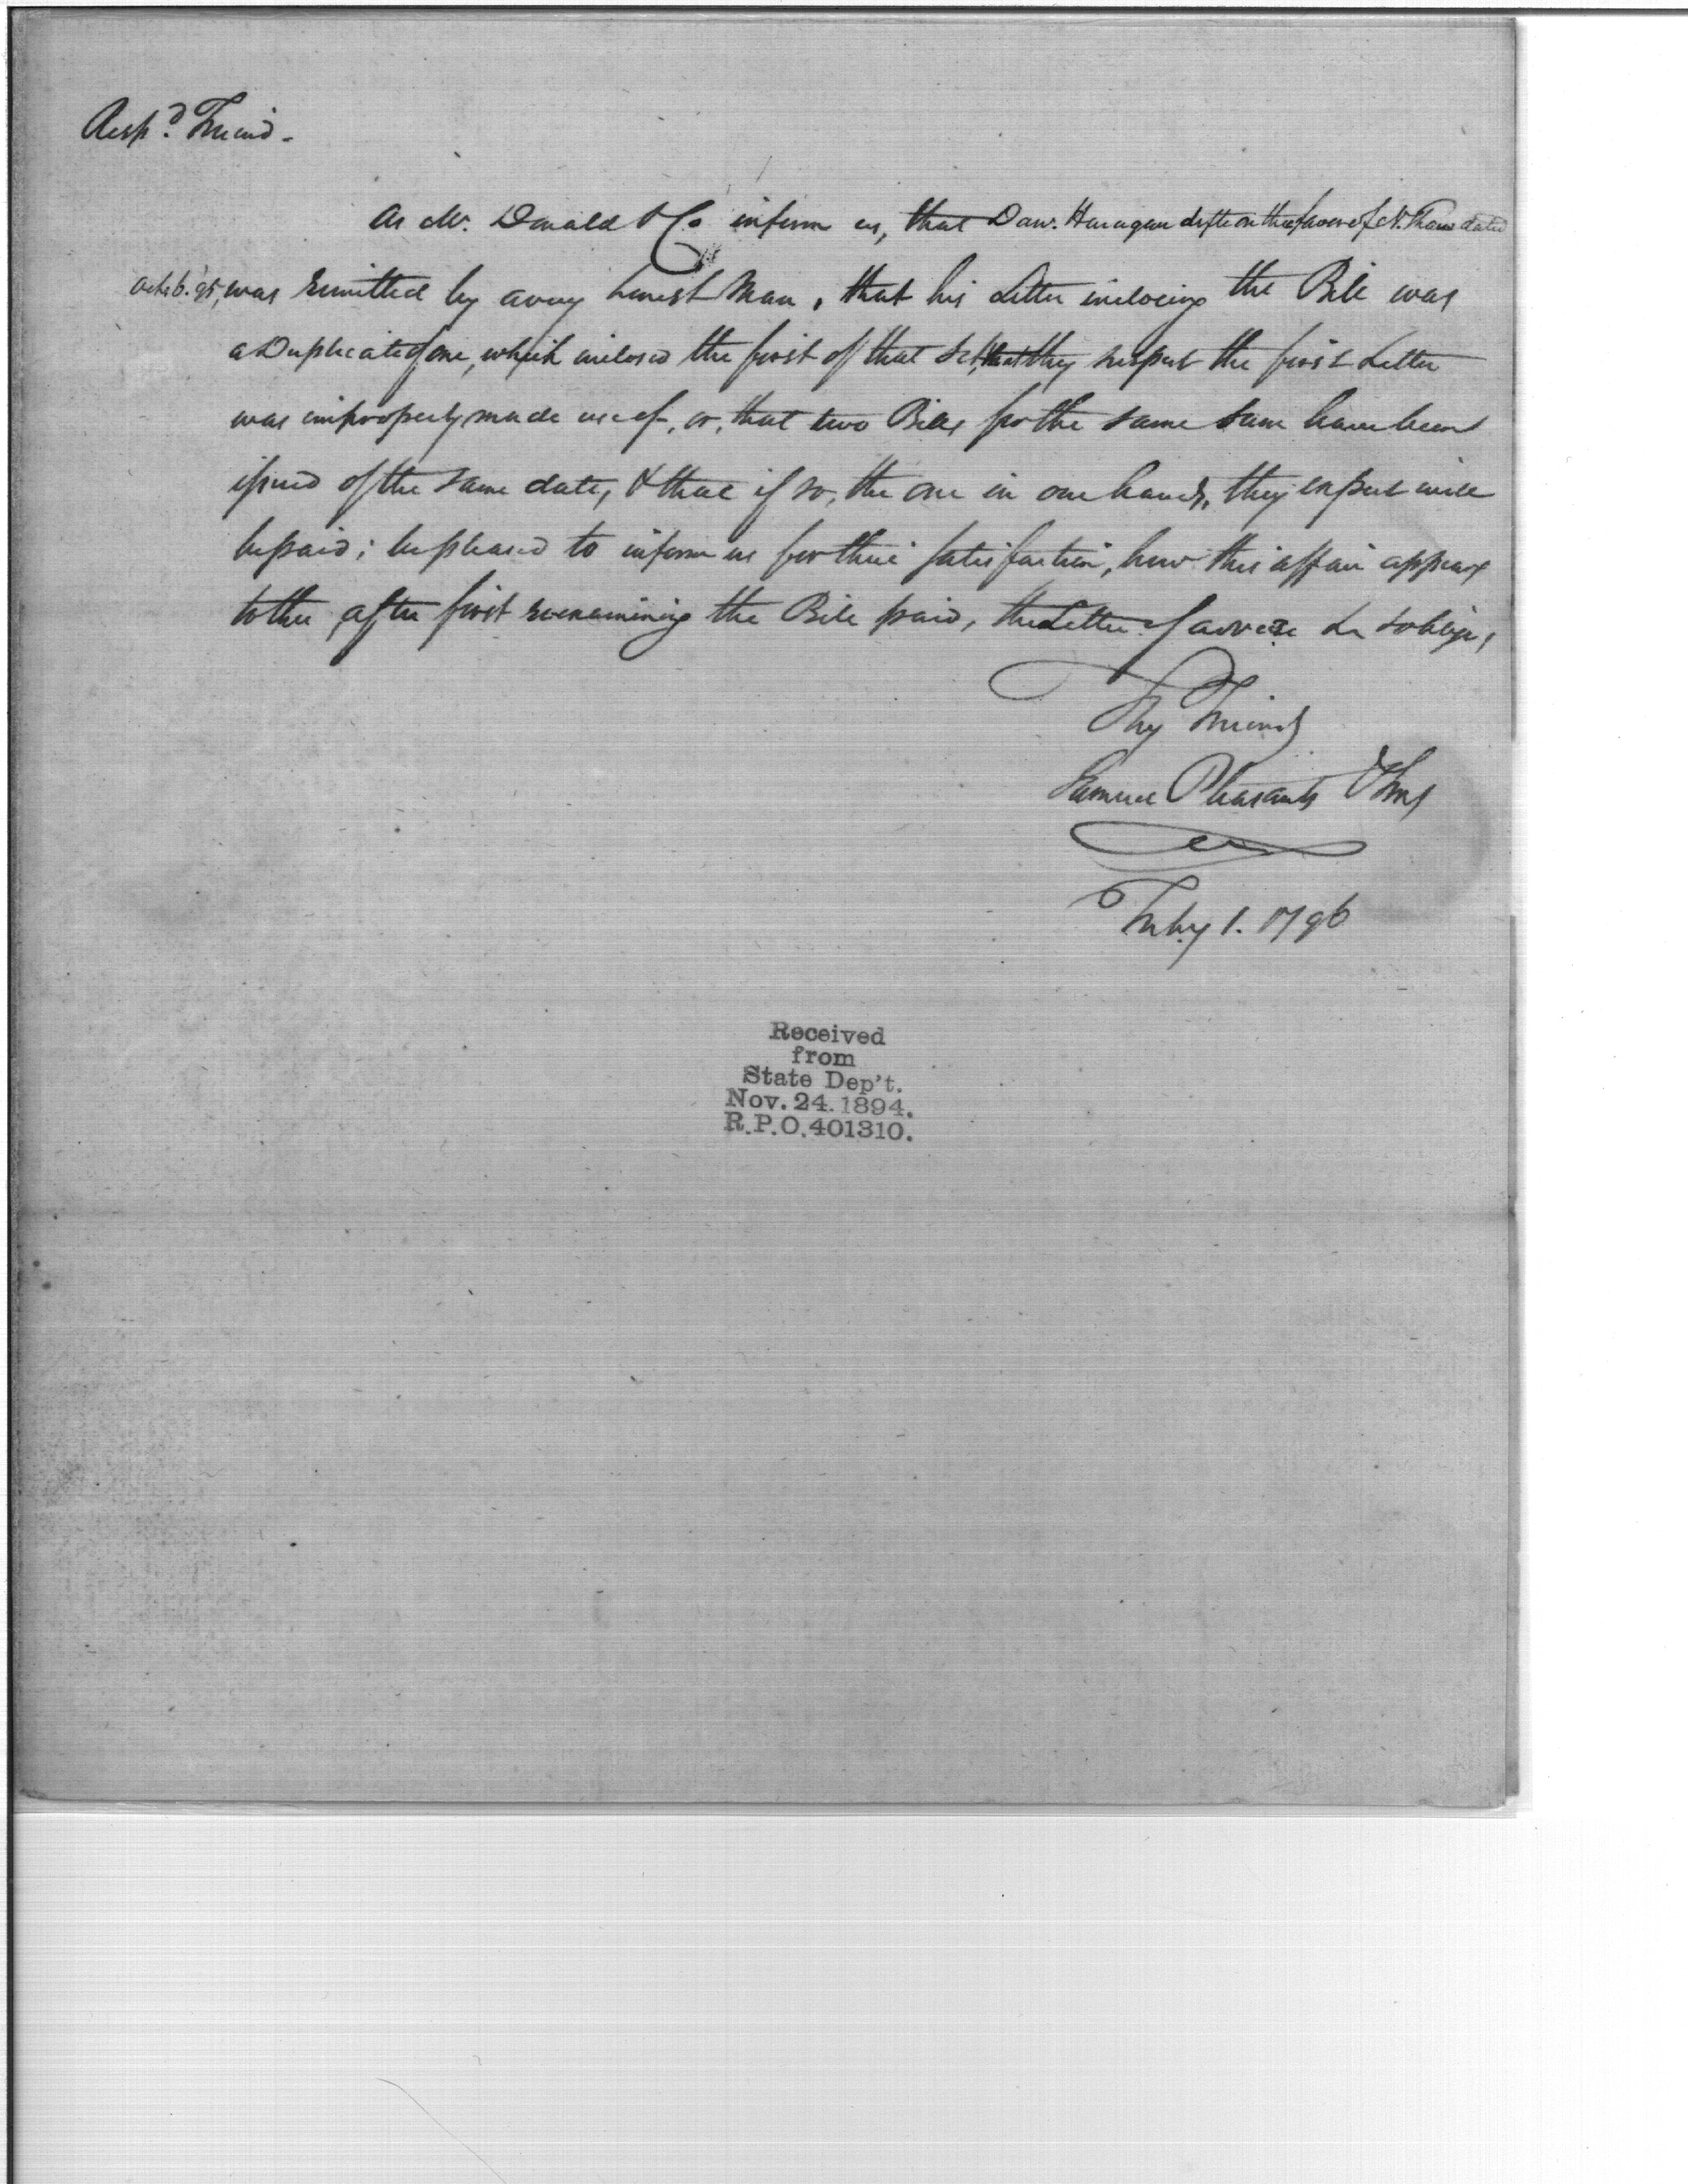 Resp.d Friend -
As Mc. Donald & Co inform us, that Danl. Haragan dfte on thee favor of N. dated
Octr. 6. 95, was remitted by a very honest Man, that his Letter inclosing the Bill was
a Duplicate of one, which inclosed the first of that set, that they suspect the first Letter
was improperly made use of, or, that two Bills for the same sum have been
issued of the same date, & that if so, the one in our hands, they expect will
be paid; be pleased to inform us for their satisfaction, how this affair appears
to thee, after first reexamining the Bill paid, the Letter of advice &c & oblige,
Thy Friends
Samuel Pleasants & Sons
Feby 1. 1796
Received
from
State Dep't.
Nov. 24. 1894.
R.P.O. 401310.